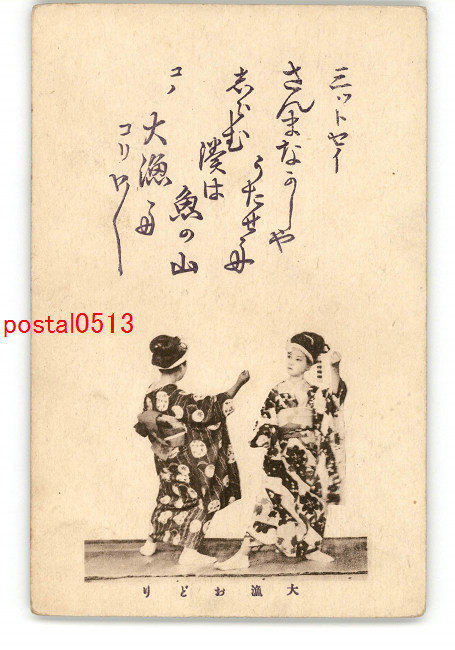 三ットセイ
さんまなかしや
うたせ舟
志らむ
濱は
魚の山
コノ
大漁舟
コリャ〱
postal0513
大漁おどり